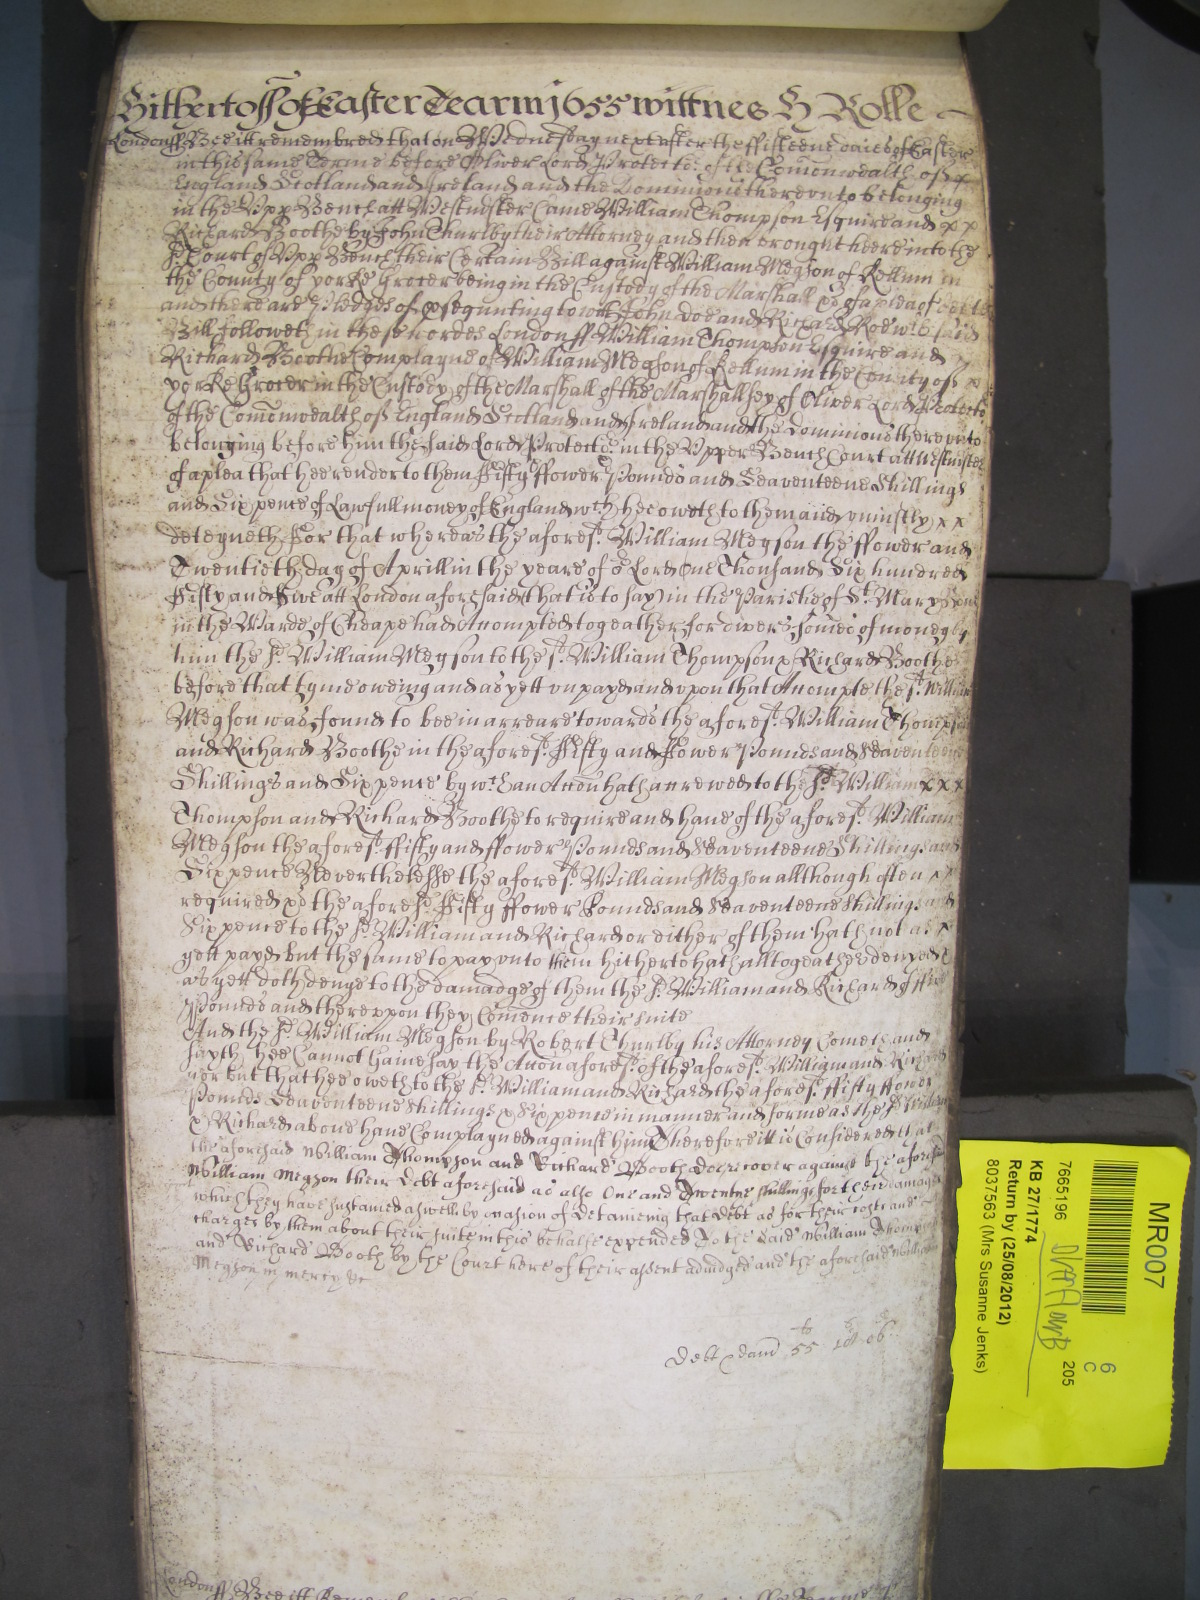 Hitherto off of Easter Tearm 1655 wittnes H Rolle
London ss Bee itt remembred that on Wednesday next after the fifteene daies of Easter
in this same Terme before Oliver Lord Protector of the Comonwealth off x
England Scotland and Ireland and the Dominions thereunto belonging
in the Upp Bench att Westmster Came William Thompson Esquire and x x
Richard Boothe by John Thurlby their Attorney and then brought heere into the
sd Court of Upp Bench their Certain Bill against William Megson of Kellum in
the County of yorke Grocer being in the Custody of the Marshall &c of a plea of debt
and there are Pledges of psequuting to witt John doe and Richard Roe wch said
Bill followeth in these wordes London ss William Thompson Esquire and
Richard Boothe Complayne of William Megson of Kellum in the County off x
yorke Grocer in the Custody of the Marshall of the Marshallsey of Oliver Lord Protector
of the Comonwealth off England Scotland and Ireland and the Dominions thereunto
belonging before him the said Lord Protector in the Upper Bench Court att Westminster
of a plea that hee render to them Fifty ffower Pounds and Seaventeene Shillings
and Six pence of Lawfull money of England wch hee oweth to them and uniustly x x
deteyneth For that whereas the aforesd William Megson the ffower and
Twentieth day of Aprill in the yeare of or Lord One Thousand Six hundred
Fifty and Five att London aforesaid (that is to say) in the Parishe of St Mary Bow
in the Warde of Cheape had Accompted togeather for divers somes of money by
him the sd William Megson to the sd William Thompson & Richard Boothe
before that tyme oweing and as yett unpayd and upon that Accompte the sd William
Megson was found to bee in arreare towards the aforesd William Thompson
and Richard Boothe in the aforesd Fifty and Fower Pounds and Seaventeene
Shillings and Six pence by wch an Accon hath accrewed to the sd William x x x
Thompson and Richard Boothe to require and have of the aforesd William
Megson the aforesd ffifty and ffower Pounds and Seaventeene Shillings and
Six pence Neverthelesse the aforesd William Megson allthough often x x
required &c the aforesd Fifty ffower Pounds and Seaventeene Shillings and
Six pence to the sd William and Richard or either of them hath not as x
yett payd but the same to pay unto them hitherto hath alltogeather denyed &
as yett doth denye to the damadge of them the sd William and Richard of ffive
Pounds and thereupon they Comence their suite
And the sd William Megson by Robert Thurlby his Attorney Cometh and
sayth hee Cannot gainesay the Accon aforesd of the aforesd William and Richard
nor but that hee oweth to the sd William and Richard the aforesd ffifty ffower
Pounds Seaventeene Shillings & Six pence in manner and forme as the sd William
& Richard above have Complayned against him Therefore itt is Considered that
the aforesaid William Thompson and Richard Booth doe recover against the aforesaid
William Megson their Debt aforesaid as also One and Twentye shillings for their damages
which they have sustained aswell by occasion of Detaineing that Debt as for their costs and
charges by them about their suite in this behalfe expended To the said William Thompson
and Richard Booth by the Court here of their assent adiudged and the aforesaid William
Megson in mercy &c
Debt & dam 55 18 06
London ss Bee itt Remembred
MR007
6
C
7665196 205
KB 27/1774
Return by (25/08/2012)
8037563 (Mrs Susanne Jenks)